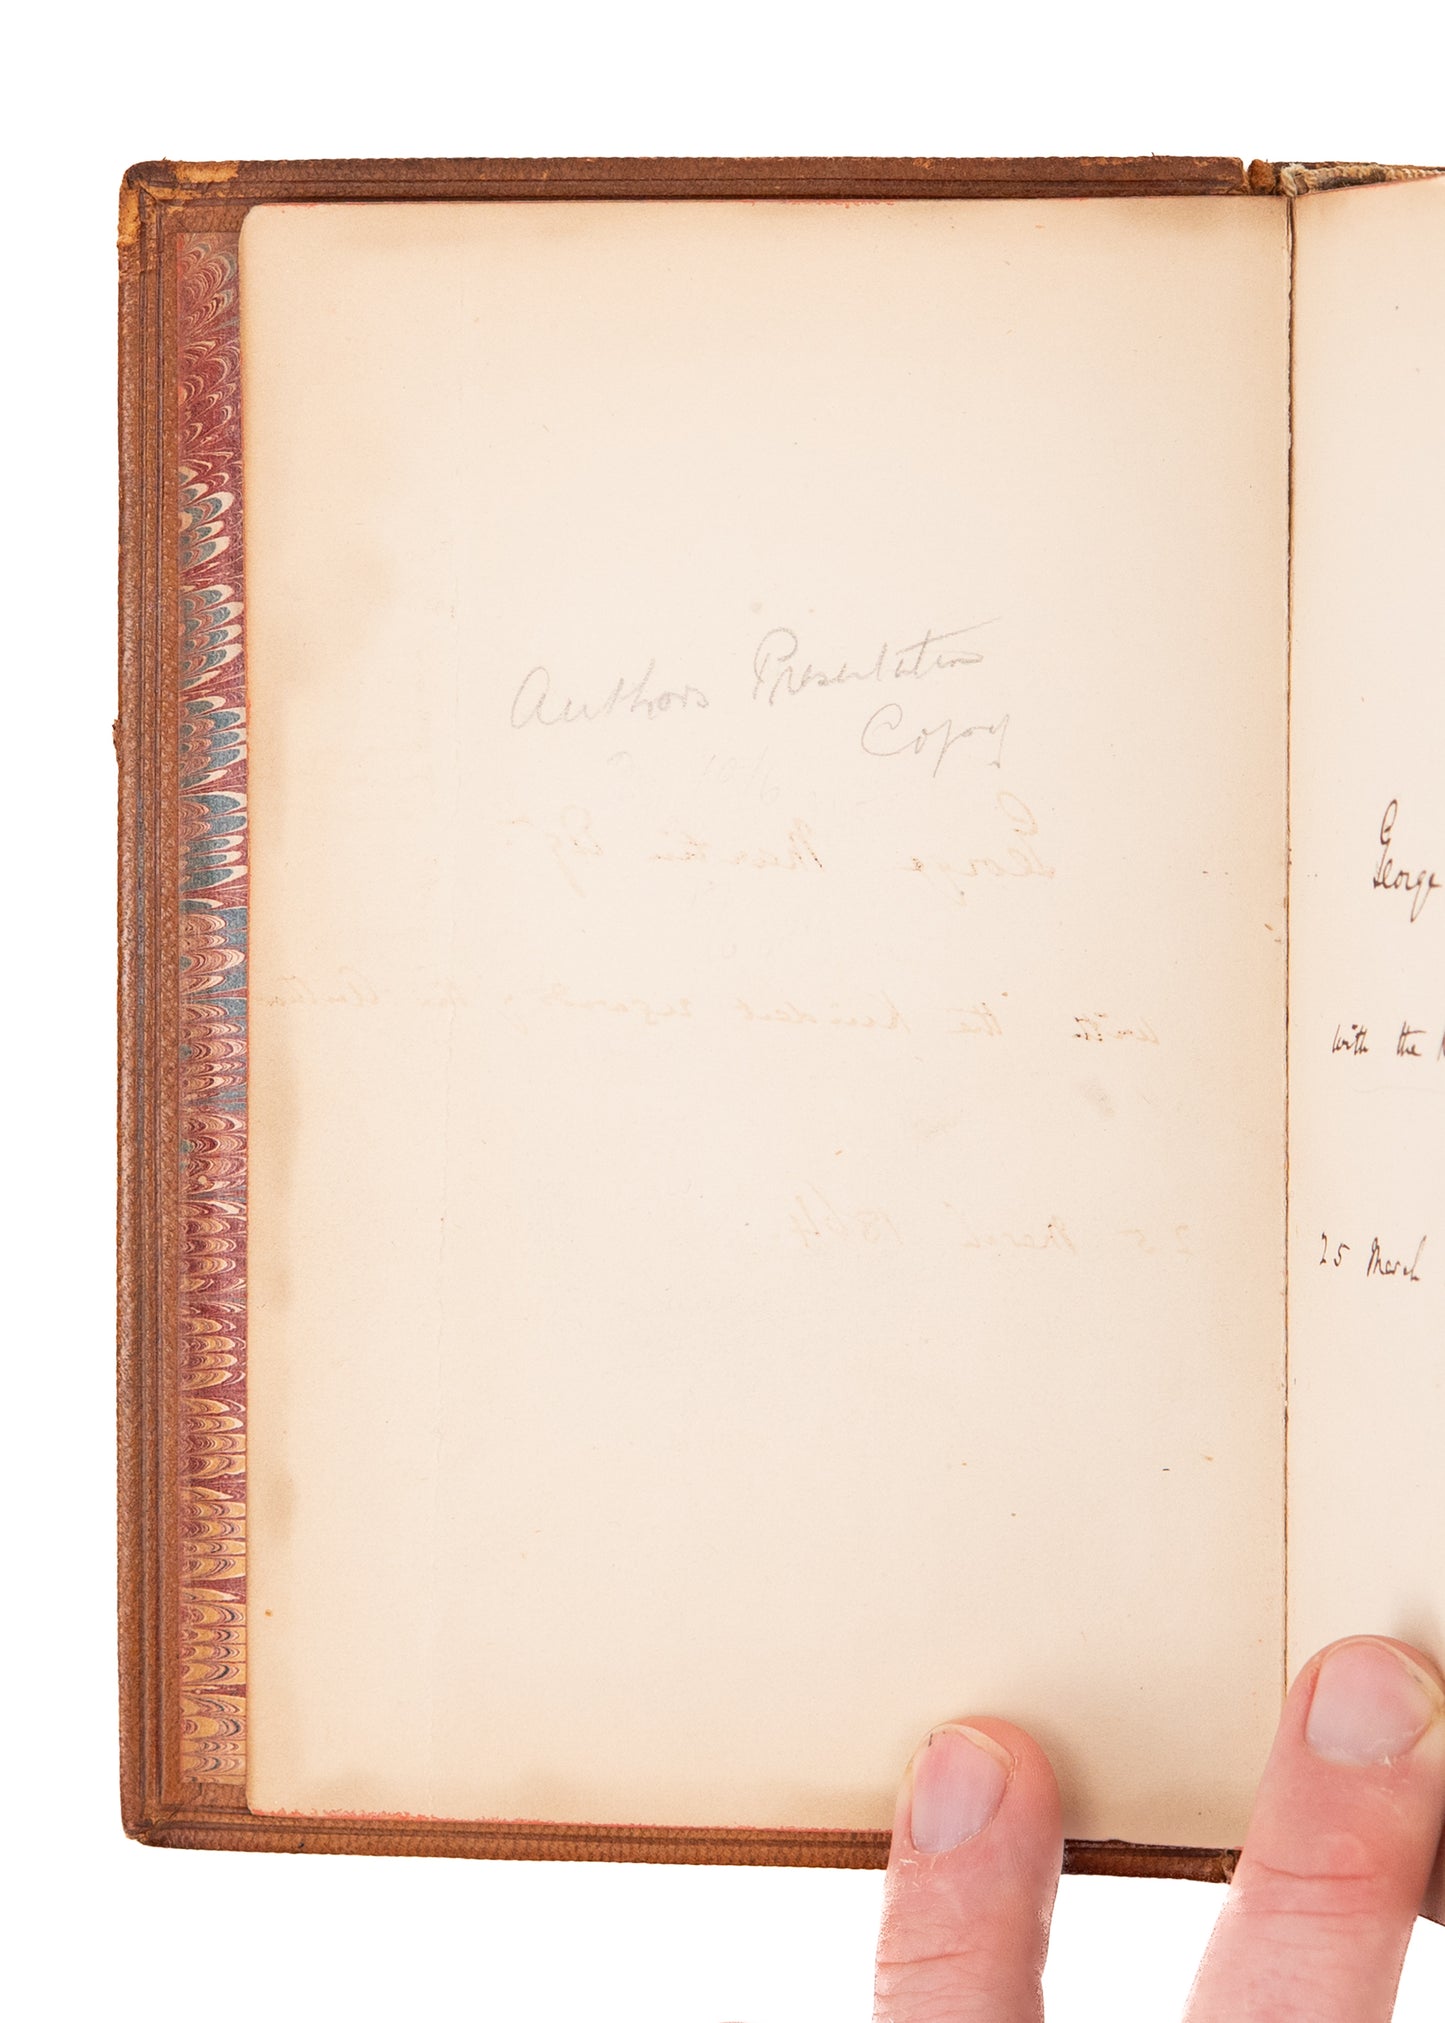 Authors Presentation
Copy
George Martin Esqr
with the kindest regards of the Author
25 March 1864.
George
with the
25 March